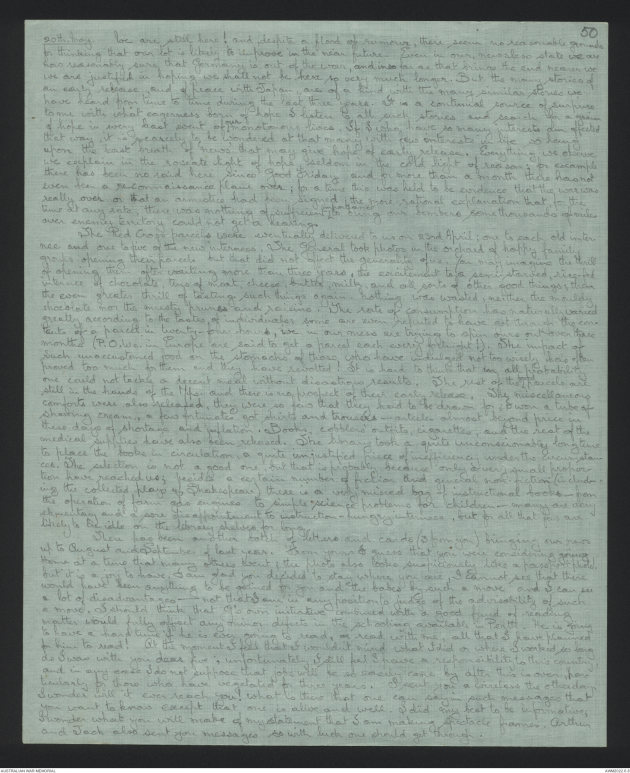 50
20th May. We are still here! and despite a flood of rumours, there seem no reasonable grounds
for thinking that our lot is likely to improve in the near future. Even in our newsless state we
are reasonably sure that Germany is out of the war, and insofar as that brings the end nearer we
we are justified in hoping we shall not be here so very much longer. But the many stories of
an early release, and of peace with Japan, are of a kind with the many similar stories we
have heard from time to time during the last three years. It is a continual source of surprise
to me with what eagerness I listen to all such stories and search for a grain
of hope in every least event of our monotonous lives. If I, who have so many interests am affected
that way, it is scarcely to be wondered at that many with few interests in life so hang
upon the least breath of news that may give hope of early release. Everything we observe
we explain in the roseate light of hope, seldom in the cold light of reason; for example
there has been no raid here since Good Friday and for more than a month there has not
even been a reconnaissance plane over; for a time this was held to be evidence that the war was
really over or that an armistice had been signed, the more rational explanation that, for the
time at any rate, there was nothing of sufficient importance to bring our bombers some thousands of miles
over enemy territory could not get a hearing.
The Red Cross parcels were eventually delivered to us on 23rd April; one to each old inter-
nee and one to five of the new internees. The General took photos in the orchard of happy family
groups opening their parcels but that did not affect the generality of us. You may imagine the thrill
of opening them after waiting more than three years, the excitement to a semi-starved, rice-fed
internee of chocolate, tins of meat, cheese, butter, milk, and all sorts of other good things; then
the even greater thrill of tasting such things again. Nothing was wasted, neither the mouldy
chocolate nor the maggoty prunes and raisins. The rate of consumption has naturally varied
greatly according to the tastes of individuals: some are even reputed to have eaten the con-
tents of a parcel in twenty-one hours, we in our mess are hoping to spin ours out over three
months (P.O.Ws. in Europe are said to get a parcel each every fortnight!). The impact of
such unaccustomed food on the stomachs of those who have indulged not too wisely has often
proved too much for them and they have revolted! It is hard to think that in all probability
one could not tackle a decent meal without disastrous results. The rest of the parcels are
still in the hands of the and there is no prospect of their early release. The miscellaneous
comforts were also released, they were so few that they had to be drawn for; I won a tube of
shaving cream, a few fortunates got shirts and trousers articles almost beyond price in
these days of shortage and inflation. Books, cobblers outfits, cigarettes, and the rest of the
medical supplies have also been released. The library took a quite unconscionably long time
to place the books in circulation, a quite unjustified piece of inefficiency under the circumstan-
ces. The selection is not a good one, but that is probably because only a very small propor-
tion have reached us; besides a certain number of fiction and general non-fiction (includ-
ing the collected plays of Shakespeare) there is a very mixed bag of instructional books - from
the operation of farms and dairies to simple science problems for children - many are very
elementary and a sore disappointment to instruction-hungry internees, but for all that few are
likely to be idle on the library shelves for long.
There has been another batch of letters and cards (3 from you) bringing our news
up to August and September of last year. From yours I guess that you were considering going
home at a time that many others went; the photo also looks suspiciously like a passport photo,
but it is good to have. I am glad you decided to stay where you are, I cannot see that there
would have been anything to be gained for you and the babes by such a move and I can see
a lot of disadvantages - not that I am in any position to judge of the advisability of such
a move. I should think that own initiative coupled with a good fund of reading
matter would fully offset any minor defects in the schooling available in Perth. He is going
to have a hard time if he is ever going to read, or read with me, all that I have planned
for him to read! At the moment I feel that I wouldn't mind what I did or where I worked so long
as I was with you dear five; unfortunately, I still feel I have a responsibility to this country
and in any case I do not suppose that jobs will be so easily come by after this is over, par-
ticularly to those who have vegetated for three years. I sent you a wireless the other day.
I wonder will it ever reach you! What is there that one can say in such messages that
you want to know except that one is alive and well. I did my best to be informative;
I wonder what you will make of my statement that I am making spectacle frames. Arthur
and Jack also sent you messages so with luck one should get through.
AUSTRALIAN WAR MEMORIAL